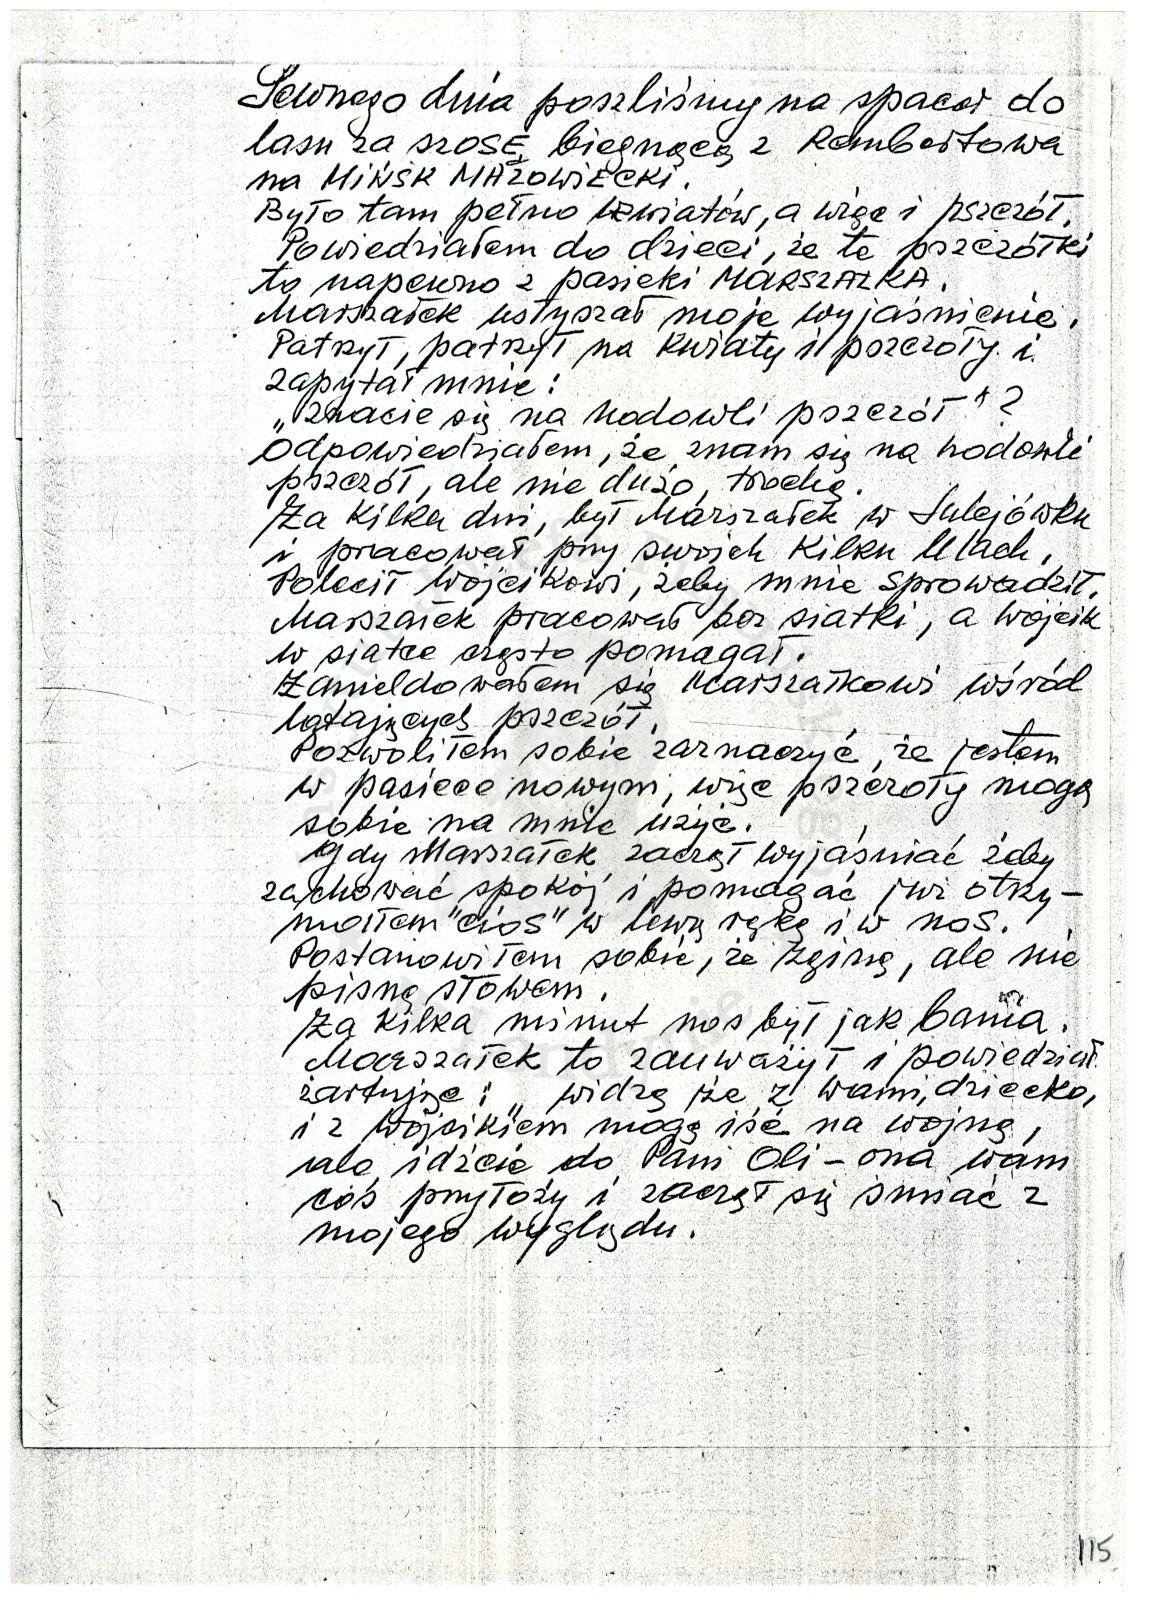 Pewnego dnia poszliśmy na spacer do
lasu za szosę, biegnącą z Rembertowa
na MIŃSK MAZOWIECKI.
Było tam pełno kwiatów, a więc i pszczół.
Powiedziałem do dzieci, że te pszczółki
to napewno z pasieki MARSZAŁKA.
Marszałek usłyszał moje wyjaśnienie.
Patrzył, patrzył na kwiaty i pszczoły i
zapytał mnie:
„znacie się na hodowli pszczół"?
Odpowiedziałem, że znam się na hodowli
pszczół, ale nie dużo, trochę.
Za kilka dni, był Marszałek w Sulejówku
i pracował przy swoich kilku Ulach.
Polecił Wójcikowi, żeby mnie sprowadził.
Marszałek pracował bez siatki, a Wójcik
w siatce często pomagał.
Zameldowałem się Marszałkowi wśród
latających pszczół.
Pozwoliłem sobie zaznaczyć, że jestem
w pasiece nowym, więc pszczoły mogą
sobie na mnie użyć.
Gdy Marszałek zaczął wyjaśniać żeby
zachować spokój i pomagać już otrzy-
małem "cios" w lewą rękę i w nos.
Postanowiłem sobie, że zginę, ale nie
pisnę słowem.
Za kilka minut nos był jak bania.
Marszałek to zauważył i powiedział
żartując: „widzę że z wami, dziecko,
i z Wójcikiem mogę iść na wojnę,
ale idźcie do Pani Oli – ona wam
coś przyłoży i zaczął się śmiać z
mojego wyglądu.
115